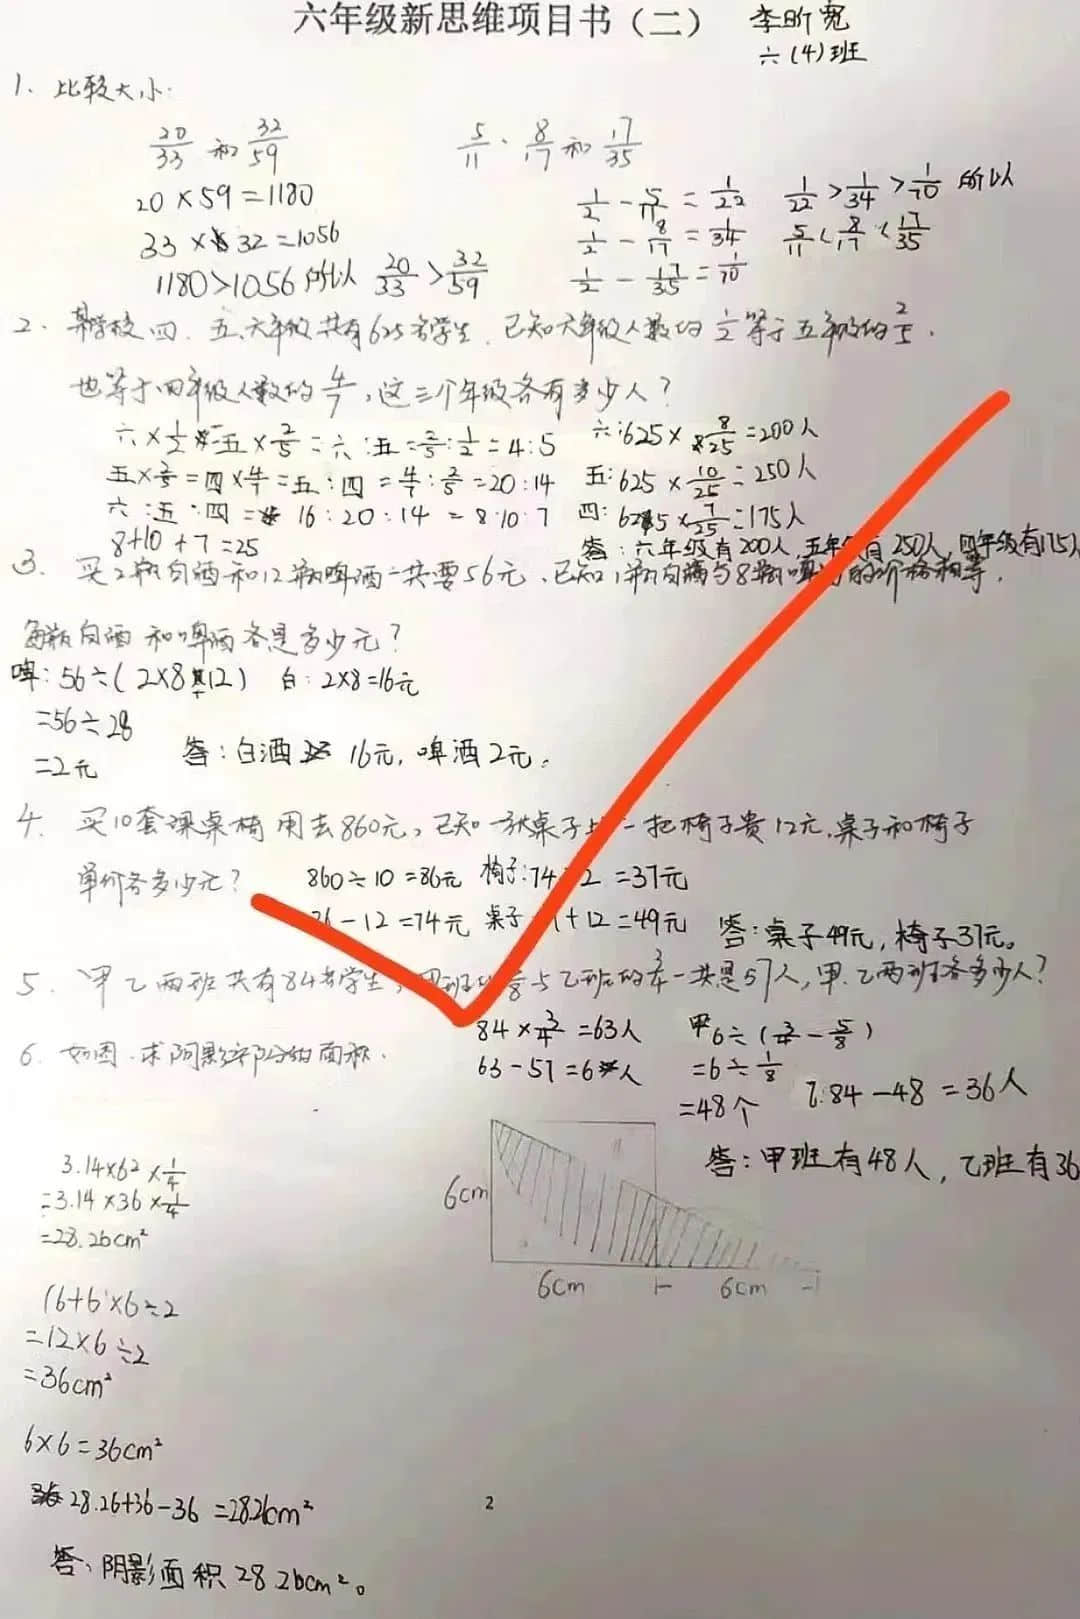 六年级新思维项目书（二） 李昕宽
六(4)班
1、比较大小:
20/33 和 32/59 5/11、8/17 和 17/35
20×59=1180 1/2-5/11=1/22 1/22>1/34>1/70 所以
33×32=1056 1/2-8/17=1/34 5/11<8/17<17/35
1180>1056 所以 20/33>32/59 1/2-17/35=1/70
2、某学校四、五、六年级共有625名学生、已知六年级人数的1/2等于五年级的2/5、
也等于四年级人数的4/7,这三个年级各有多少人?
六×1/2=五×2/5=六:五=2/5:1/2=4:5 六:625×8/25=200人
五×2/5=四×4/7=五:四=4/7:2/5=20:14 五:625×10/25=250人
六:五:四=16:20:14=8:10:7 四:625×7/25=175人
8+10+7=25 答:六年级有200人,五年级有250人,四年级有175人
3、买2瓶白酒和12瓶啤酒一共要56元、已知1瓶白酒与8瓶啤酒的价格相等,
每瓶白酒和啤酒各是多少元?
啤:56÷(2×8+12) 白:2×8=16元
=56÷28
=2元 答:白酒16元,啤酒2元。
4、买10套课桌椅用去860元,已知一张桌子比一把椅子贵12元,桌子和椅子
单价各多少元? 860÷10=86元 椅子:74÷2=37元
86-12=74元 桌子 +12=49元 答:桌子49元,椅子37元。
5、甲乙两班共有84名学生,甲班的5/8与乙班的3/4一共是57人,甲、乙两班各多少人?
84×3/4=63人 甲6÷(3/4-5/8)
6、如图、求阴影部分的面积、 63-57=6人 =6÷1/8
=48个 乙:84-48=36人
答:甲班有48人,乙班有36
3.14×6²×1/4
=3.14×36×1/4
=28.26cm²
6cm
6cm 6cm
(6+6)×6÷2
=12×6÷2
=36cm²
6×6=36cm²
28.26+36-36=28.26cm²
2
答:阴影面积28.26cm²。